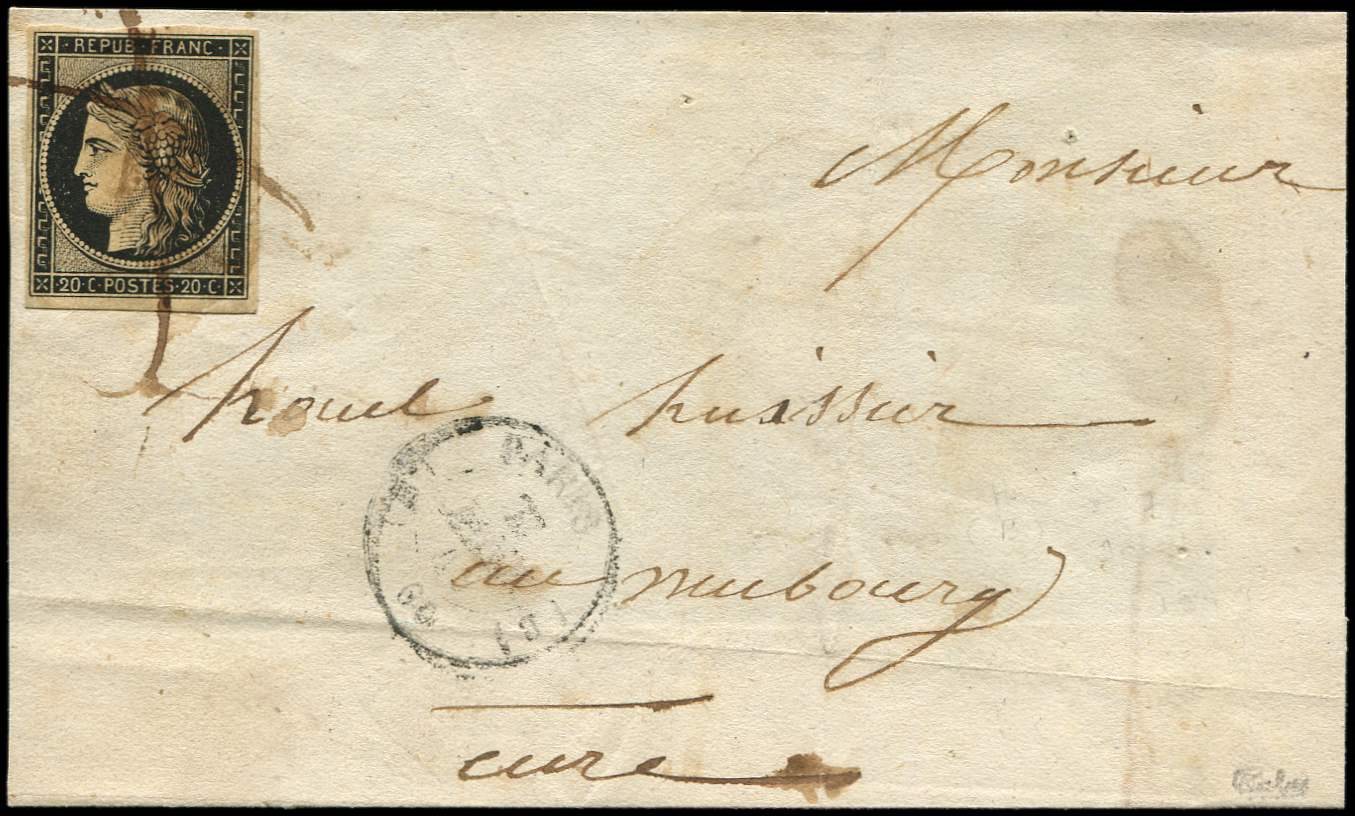 REPUB·FRANC·
20·C·POSTES·20·C·
Monsieur
houel huissier
PARIS
au neubourg
(60)
eure